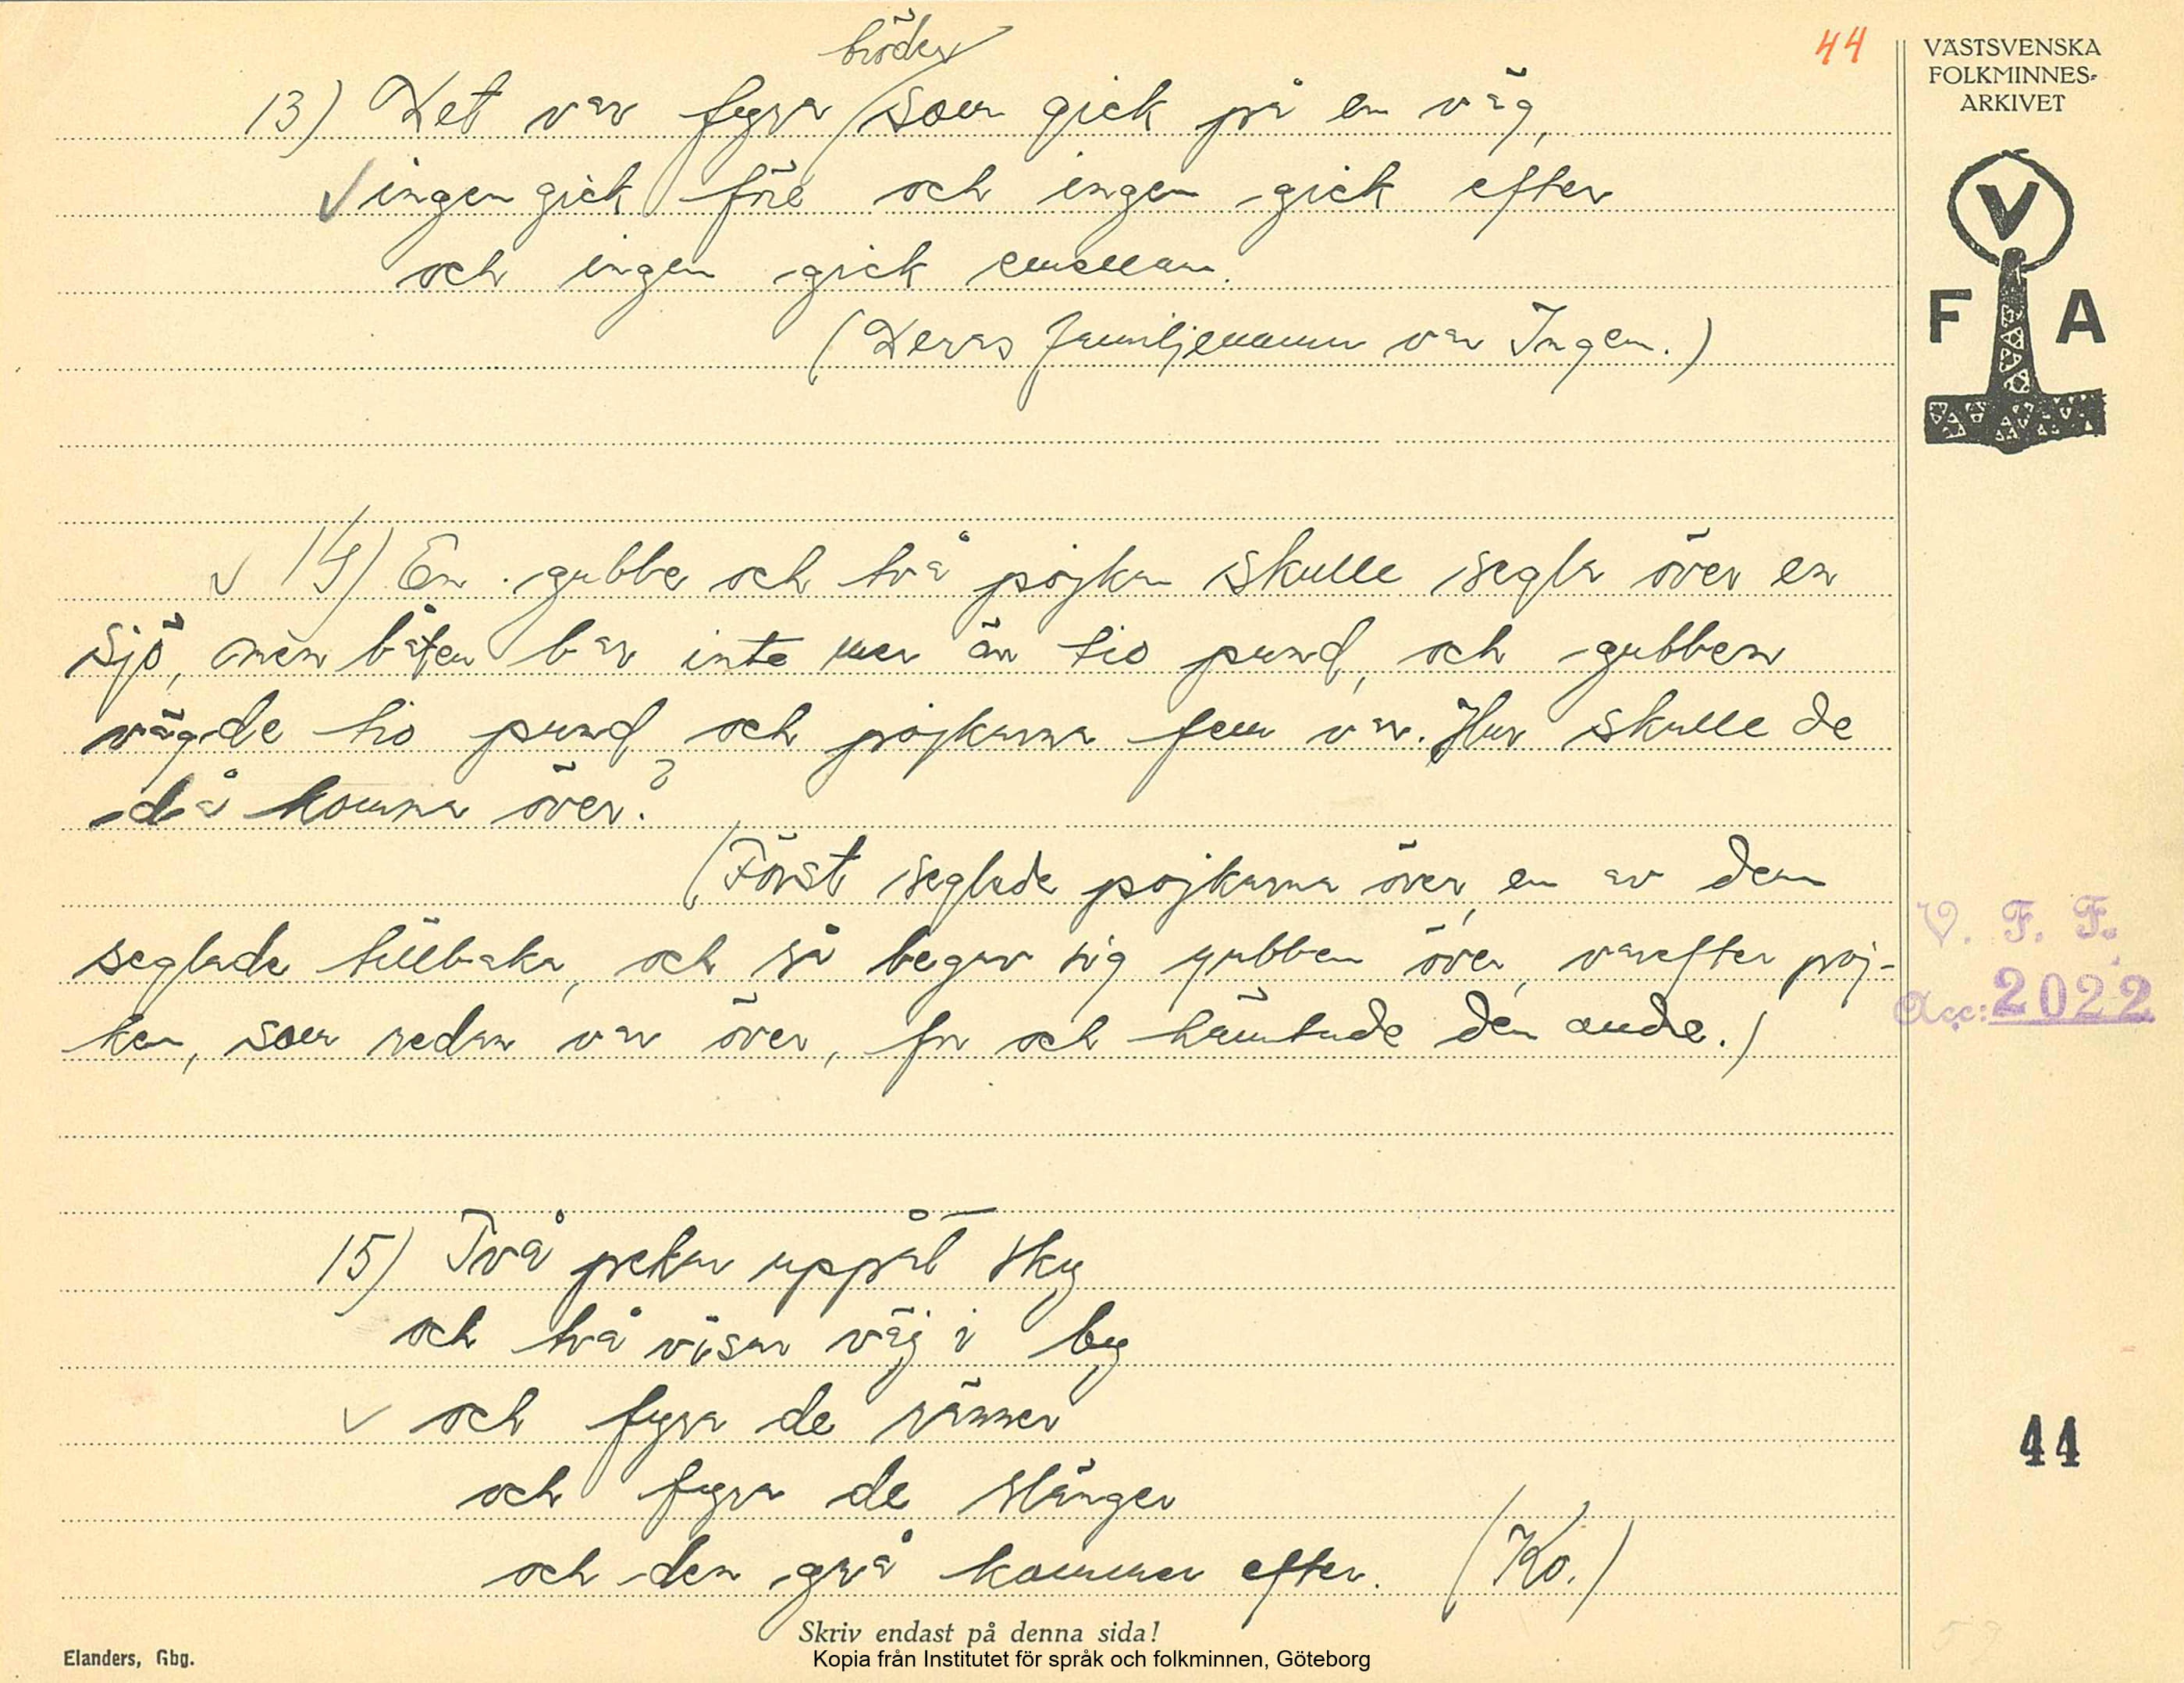 44
VÄSTSVENSKA
FOLKMINNES-
ARKIVET
V
F A
bröder
13) Det var fyra som gick på en väg,
ingen gick före och ingen gick efter
och ingen gick emellan.
(Deras familjenamn var Ingen.)
14) En gubbe och två pojkar skulle segla över en
sjö, men båten bar inte mer än tio pund, och gubben
vägde tio pund och pojkarna fem var. Hur skulle de
då komma över?
(Först seglade pojkarna över, en av dem
seglade tillbaka, och så begav sig gubben över, varefter poj-
ken, som redan var över, for och hämtade den andre.)
V. F. F.
Acc: 2022
15) Två pekar uppåt sky
och två visar väj i by
och fyra de ränner
och fyra de slänger
och den grå kommer efter. (Ko.)
44
Skriv endast på denna sida!
Elanders, Gbg.
Kopia från Institutet för språk och folkminnen, Göteborg